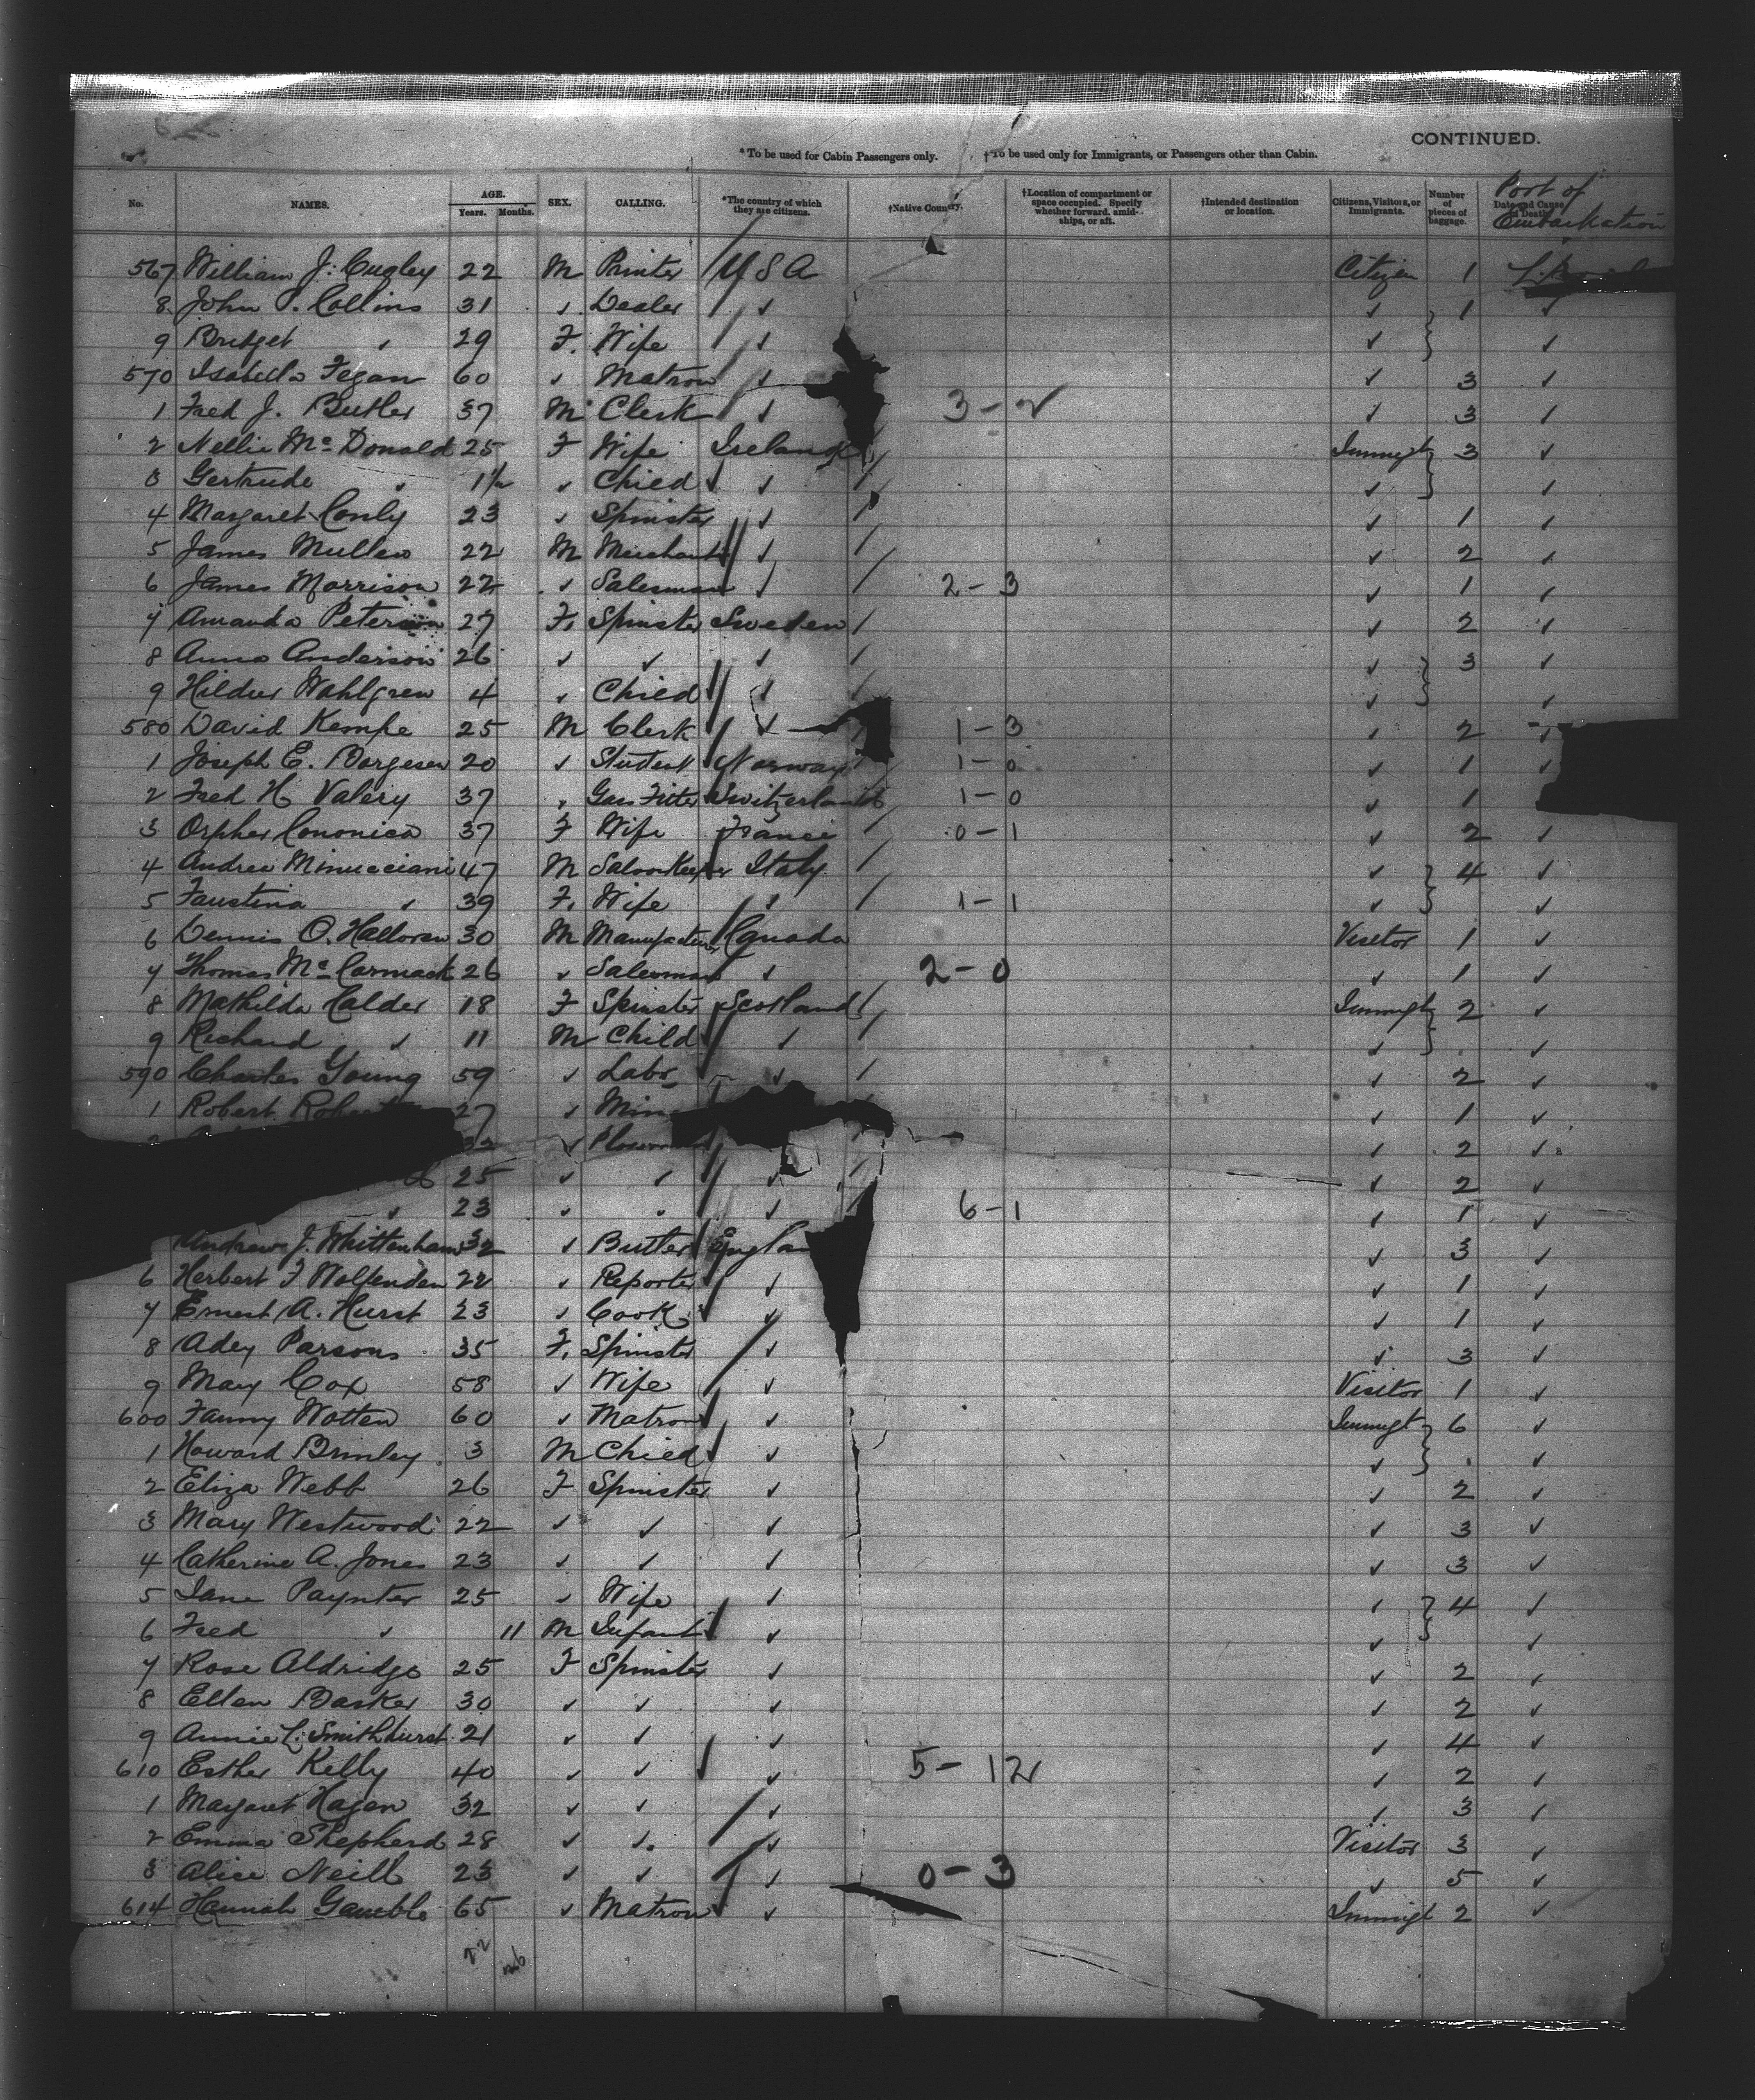 CONTINUED.
*To be used for Cabin Passengers only. †To be used only for Immigrants, or Passengers other than Cabin.
No. NAMES. AGE. Years. Months. SEX. CALLING. *The country of which they are citizens. †Native Country. †Location of compartment or space occupied. Specify whether forward, amidships, or aft. †Intended destination or location. Citizens, Visitors, or Immigrants. Number of pieces of baggage. Date and Cause of Death. Port of Embarkation
567 William J. Cugley 22 M Printer U S A Citizen 1
8 John P. Collins 31 ✓ Dealer ✓ ✓ 1 ✓
9 Bridget ✓ 29 F. Wife ✓ ✓ ✓
570 Isabella Fegan 60 ✓ Matron ✓ ✓ 3 ✓
1 Fred J. Butler 37 M Clerk ✓ 3-2 ✓ 3 ✓
2 Nellie Mc Donald 25 F Wife Ireland Immigt 3 ✓
3 Gertrude ✓ 1½ ✓ Child ✓ ✓ ✓
4 Margaret Conly 23 ✓ Spinster ✓ ✓ 1 ✓
5 James Mullen 22 M Merchant ✓ ✓ 2 ✓
6 James Morrison 22 ✓ Salesman ✓ 2-3 ✓ 1 ✓
7 Amanda Peterson 27 F. Spinster Sweden ✓ 2 ✓
8 Anna Anderson 26 ✓ ✓ ✓ ✓ 3 ✓
9 Hildur Wahlgren 4 ✓ Child ✓ ✓ ✓
580 David Kempe 25 M Clerk ✓ 1-3 ✓ 2 ✓
1 Joseph E. Borgesen 20 ✓ Student Norway 1-0 ✓ 1 ✓
2 Fred H Valery 37 ✓ Gas Fitter Switzerland 1-0 ✓ 1
3 Orphee Cononica 37 F Wife France 0-1 ✓ 2 ✓
4 Andrea Minucciani 47 M Saloon Keeper Italy ✓ 4 ✓
5 Faustina ✓ 39 F. Wife ✓ 1-1 ✓ ✓
6 Dennis O. Halloren 30 M Manufacturer Canada Visitor 1 ✓
7 Thomas Mc Cormack 26 ✓ Salesman ✓ 2-0 ✓ 1 ✓
8 Mathilda Calder 18 F Spinster Scotland Immigt 2 ✓
9 Richard ✓ 11 M Child ✓ ✓ ✓
590 Charles Young 59 ✓ Labr ✓ ✓ 2 ✓
1 Robert 27 ✓ ✓ 1 ✓
32 ✓ ✓ 2 ✓
25 ✓ ✓ ✓ ✓ 2 ✓
✓ 23 ✓ ✓ ✓ 6-1 ✓ 1 ✓
Andrew J. Whittenham 32 ✓ Butler ✓ 3 ✓
6 Herbert F Wolfenden 22 ✓ Reporter ✓ ✓ 1 ✓
7 Ernest A. Hurst 23 ✓ Cook ✓ ✓ 1 ✓
8 Adey Parsons 35 F. Spinster ✓ ✓ 3 ✓
9 Mary Cox 58 ✓ Wife ✓ Visitor 1 ✓
600 Fanny Wotten 60 ✓ Matron ✓ Immigt 6 ✓
1 Howard Brinley 3 M Child ✓ ✓ ✓
2 Eliza Webb 26 F Spinster ✓ ✓ 2 ✓
3 Mary Westwood 22 ✓ ✓ ✓ ✓ 3 ✓
4 Catherine A. Jones 23 ✓ ✓ ✓ ✓ 3 ✓
5 Jane Paynter 25 ✓ Wife ✓ ✓ 4 ✓
6 Fred ✓ 11 M Infant ✓ ✓ ✓
7 Rose Aldridge 25 F Spinster ✓ ✓ 2 ✓
8 Ellen Barker 30 ✓ ✓ ✓ ✓ 2 ✓
9 Annie L. Smithhurst 21 ✓ ✓ ✓ ✓ 4 ✓
610 Esther Kelly 40 ✓ ✓ ✓ 5-12 ✓ 2 ✓
1 Margaret Hagen 32 ✓ ✓ ✓ ✓ 3 ✓
2 Emma Shepherd 28 ✓ ✓ ✓ Visitor 3 ✓
3 Alice Neill 23 ✓ ✓ ✓ 0-3 ✓ 5 ✓
614 Hannah Gamble 65 ✓ Matron ✓ Immigt 2 ✓